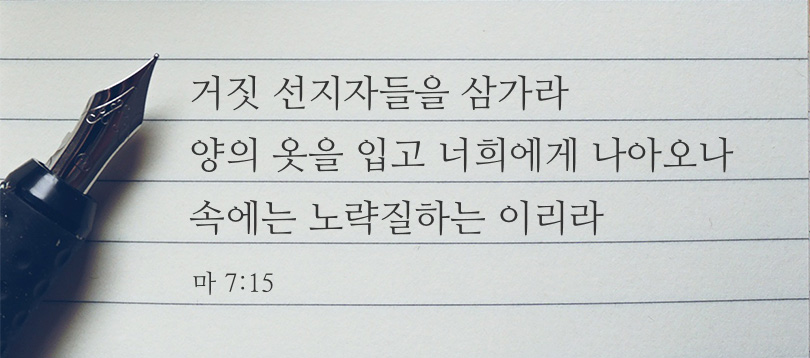 거짓 선지자들을 삼가라
양의 옷을 입고 너희에게 나아오나
속에는 노략질하는 이리라
마 7:15